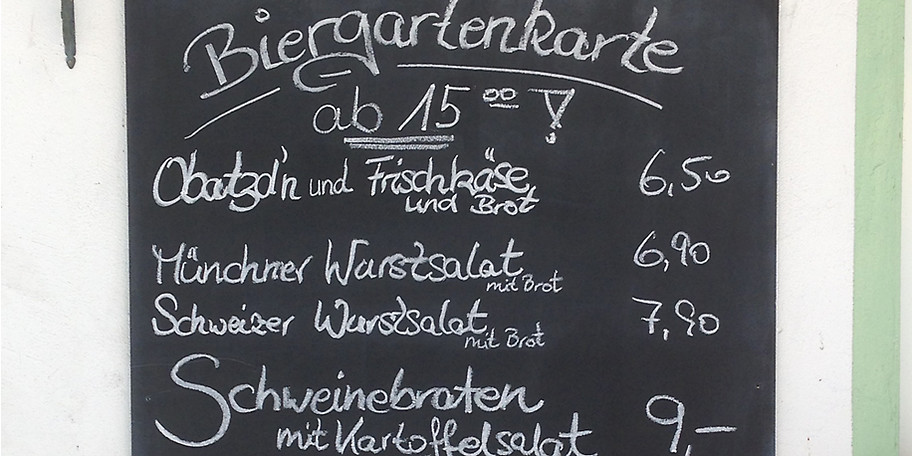 Biergartenkarte
ab 15⁰⁰ !
Obatzd'n und Frischkäse 6,50
und Brot
Münchner Wurstsalat mit Brot 6,90
Schweizer Wurstsalat mit Brot 7,90
Schweinebraten
mit Kartoffelsalat 9,-